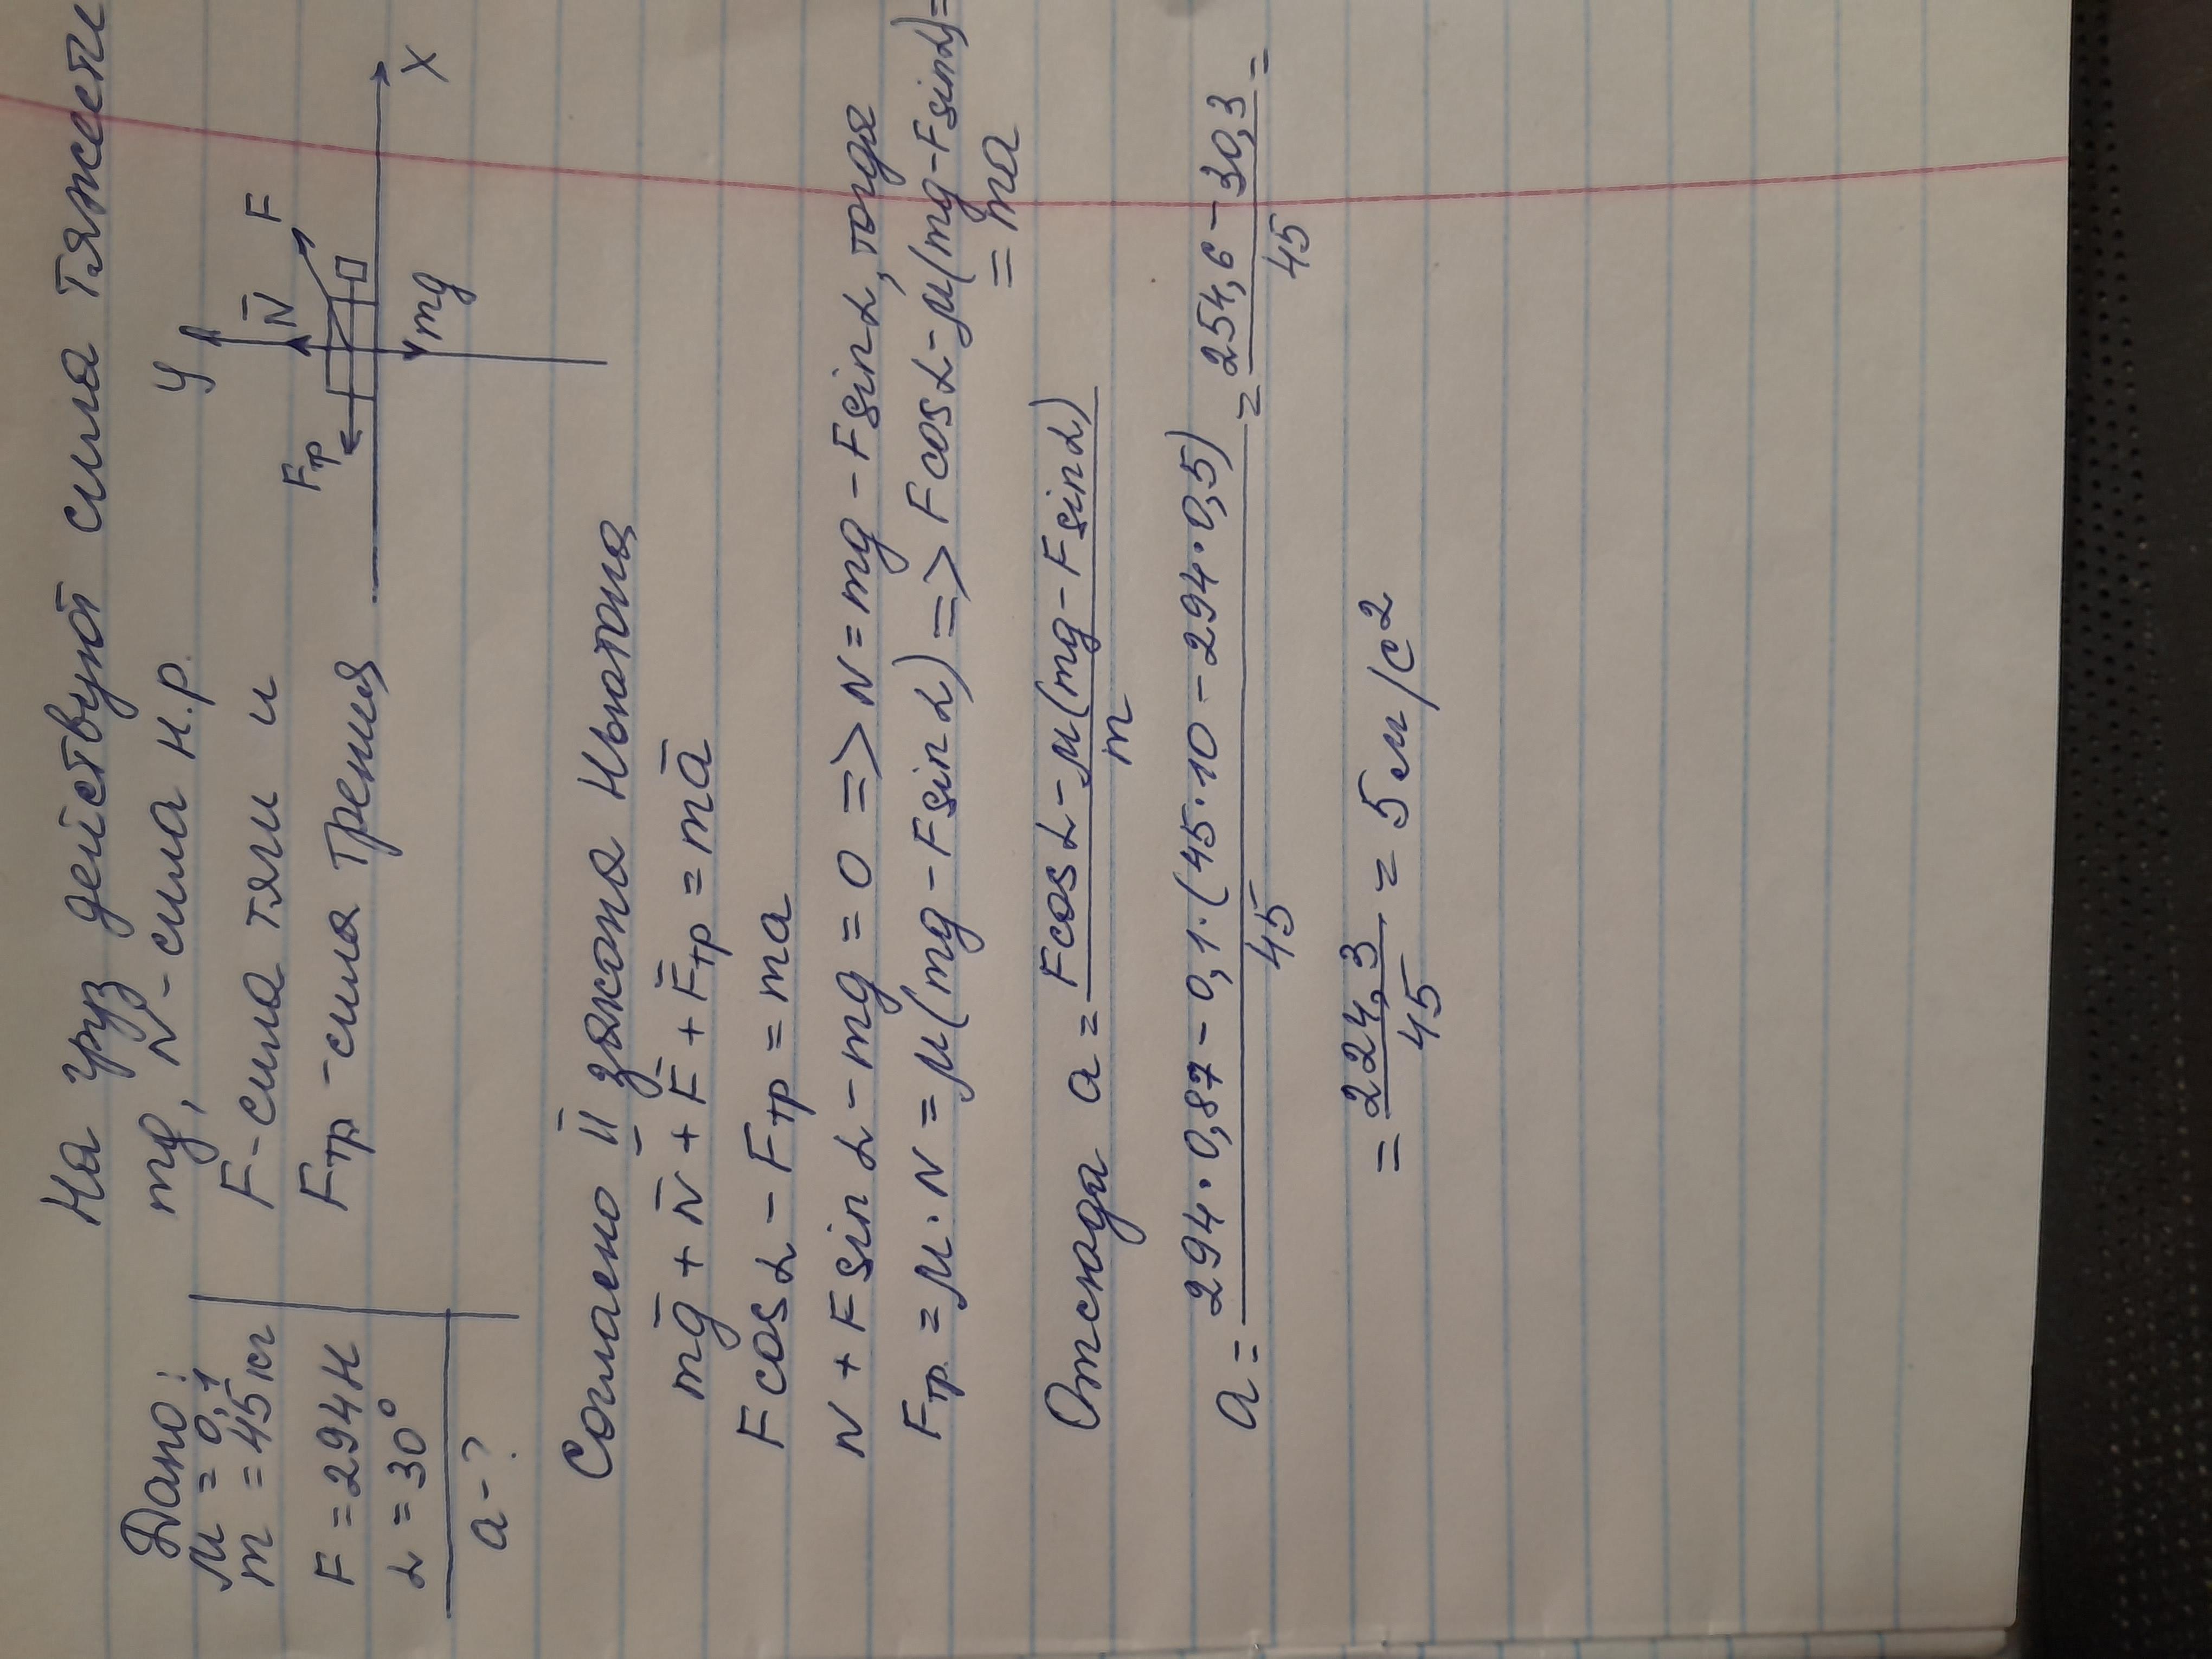 На груз действуют сила тяжести
mg, N - сила н.р.
F - сила тяги и
Fтр - сила трения
Дано:
μ = 0,1
m = 45 кг
F = 294 Н
α = 30°
a - ?
y
N̄
F
Fтр
mg
X
Согласно II закона Ньютона
mḡ + N̄ + F̄ + F̄тр = mā
F cos α - Fтр = ma
N + F sin α - mg = 0 => N = mg - F sin α, тогда
Fтр. = μ·N = μ(mg - F sin α) => F cos α - μ(mg - F sin α) =
= ma
Отсюда a = (F cos α - μ(mg - F sin α)) / m
a = (294·0,87 - 0,1·(45·10 - 294·0,5)) / 45 = (254,6 - 30,3) / 45 =
= 224,3 / 45 = 5 м/с²